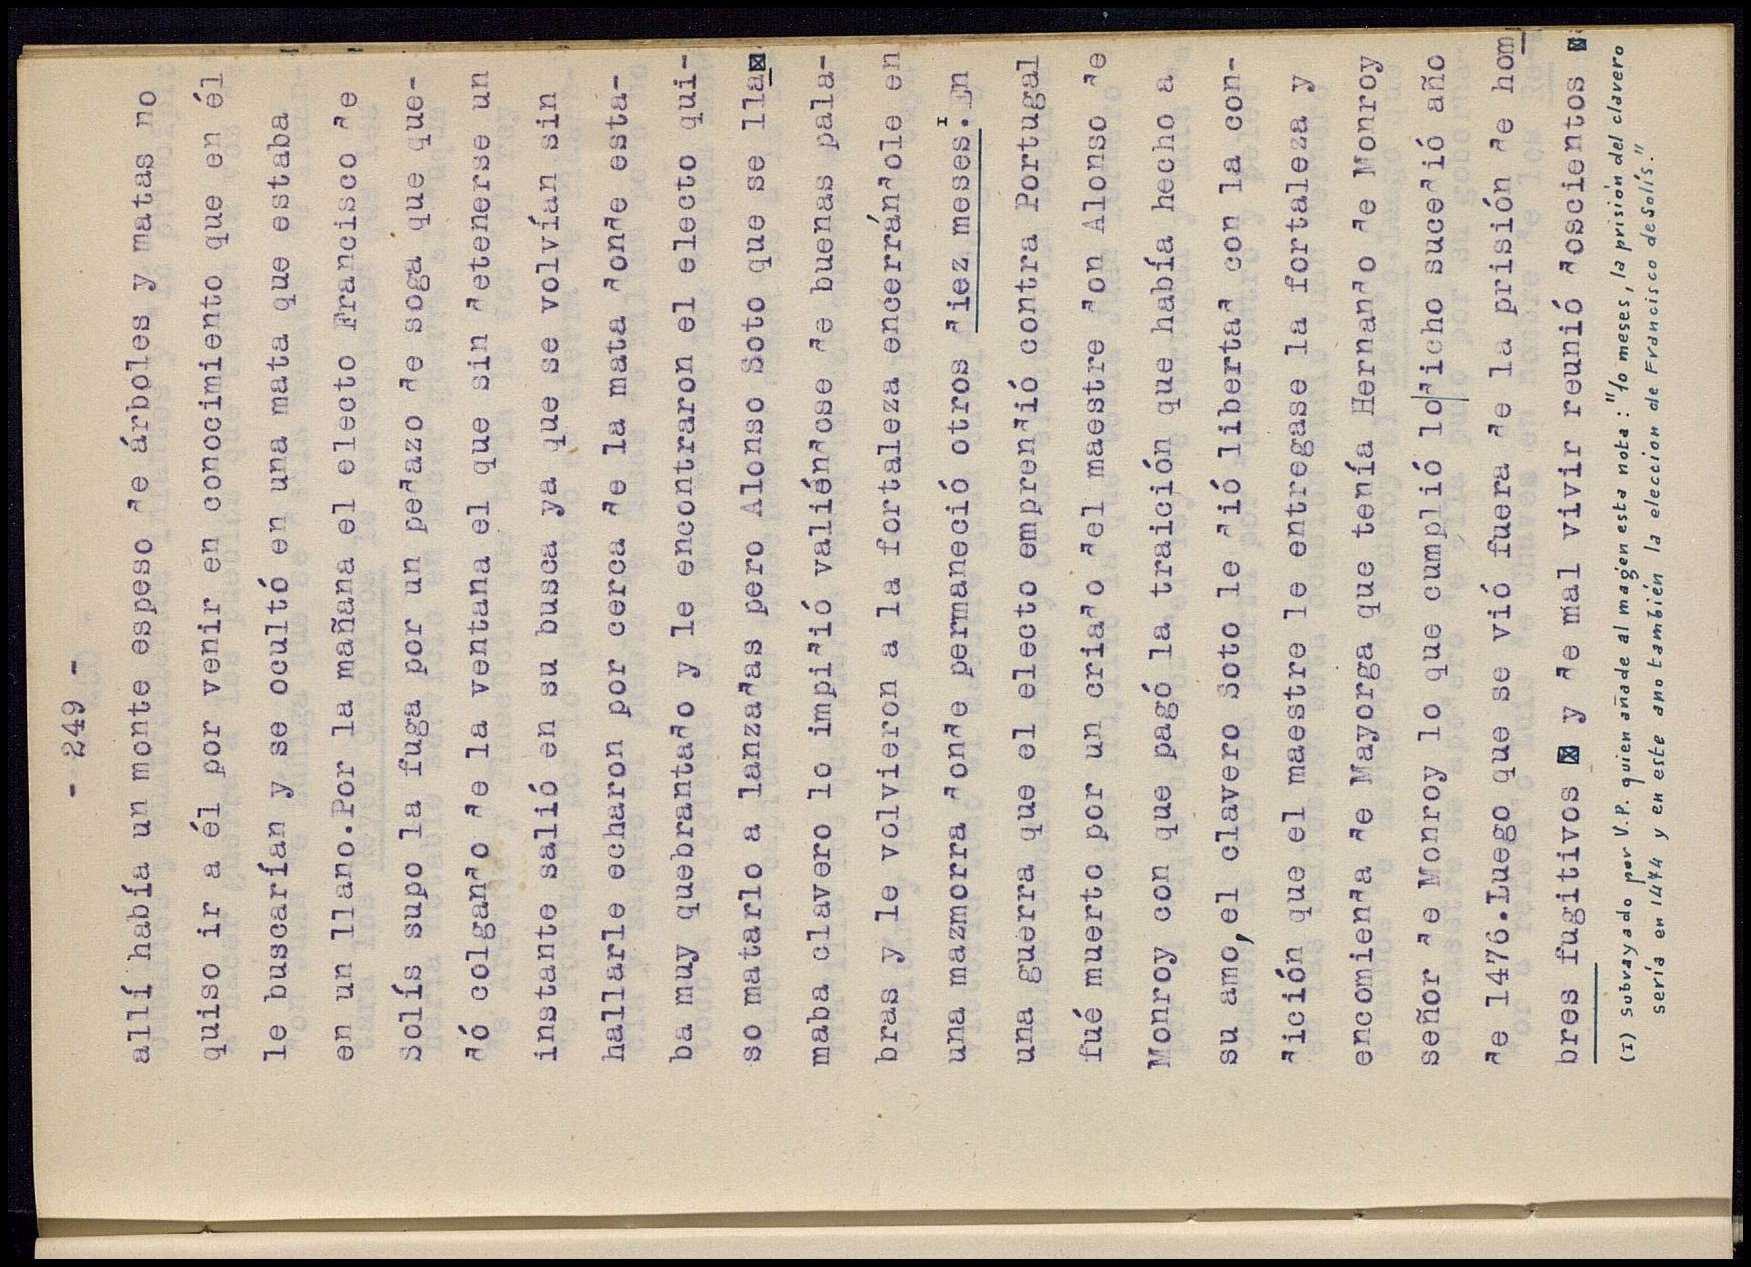 - 249 -
allí había un monte espeso de árboles y matas no
quiso ir a él por venir en conocimiento que en él
le buscarían y se ocultó en una mata que estaba
en un llano.Por la mañana el electo Francisco de
Solís supo la fuga por un pedazo de soga que que-
dó colgando de la ventana el que sin detenerse un
instante salió en su busca ya que se volvían sin
hallarle echaron por cerca de la mata donde esta-
ba muy quebrantado y le encontraron el electo qui-
so matarlo a lanzadas pero Alonso Soto que se lla
maba clavero lo impidió valiéndose de buenas pala-
bras y le volvieron a la fortaleza encerrándole en
una mazmorra donde permaneció otros diez meses.¹En
una guerra que el electo emprendió contra Portugal
fué muerto por un criado del maestre don Alonso de
Monroy con que pagó la traición que había hecho a
su amo,el clavero Soto le dió libertad con la con-
dición que el maestre le entregase la fortaleza y
encomienda de Mayorga que tenía Hernando de Monroy
señor de Monroy lo que cumplió lo|dicho sucedió año
de 1476.Luego que se vió fuera de la prisión de hom
bres fugitivos y de mal vivir reunió doscientos
(1) Subrayado por V.P. quien añade al magen esta nota: "10 meses, la prisión del clavero
sería en 1474 y en este ano también la eleccion de Francisco de Solís."